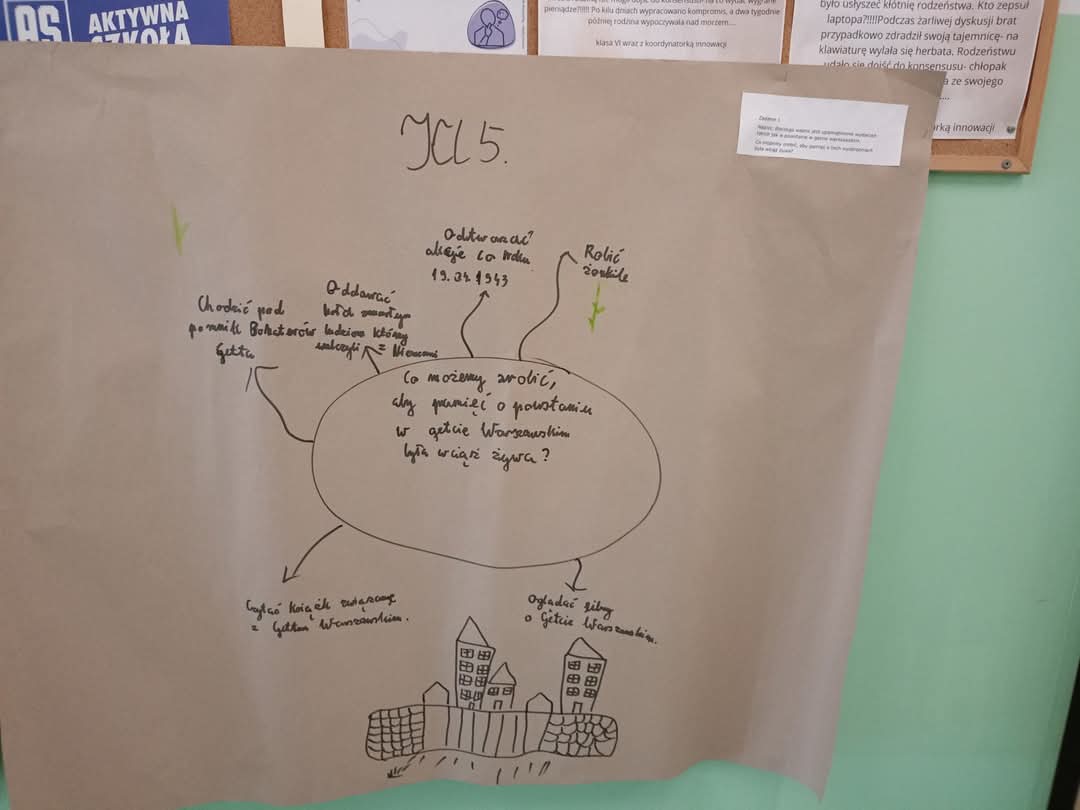 AS
AKTYWNA
SZKOŁA
pieniądze?!!!! Po kilu dniach wypracowano kompromis, a dwa tygodnie
później rodzina wypoczywała nad morzem....
klasa VI wraz z koordynatorką innowacji
było usłyszeć kłótnię rodzeństwa. Kto zepsuł
laptopa?!!!!Podczas żarliwej dyskusji brat
przypadkowo zdradził swoją tajemnicę- na
klawiaturę wylała się herbata. Rodzeństwu
udało się dojść do konsensusu- chłopak
ze swojego
rką innowacji
Zadanie 1
Napisz, dlaczego ważne jest upamiętnianie wydarzeń
takich jak w powstanie w getcie warszawskim.
Co możemy zrobić, aby pamięć o tych wydarzeniach
była wciąż żywa?
KL 5.
Odtwarzać
akcję co roku
19.04.1943
Robić
żonkile
Oddawać
hołd zmarłym
ludziom którzy
walczyli z Niemcami
Chodzić pod
pomnik Bohaterów
Getta
Co możemy zrobić,
aby pamięć o powstaniu
w getcie Warszawskim
była wciąż żywa?
Czytać książk związane
z Gettem Warszawskim.
Oglądać filmy
o Getcie Warszawskim.